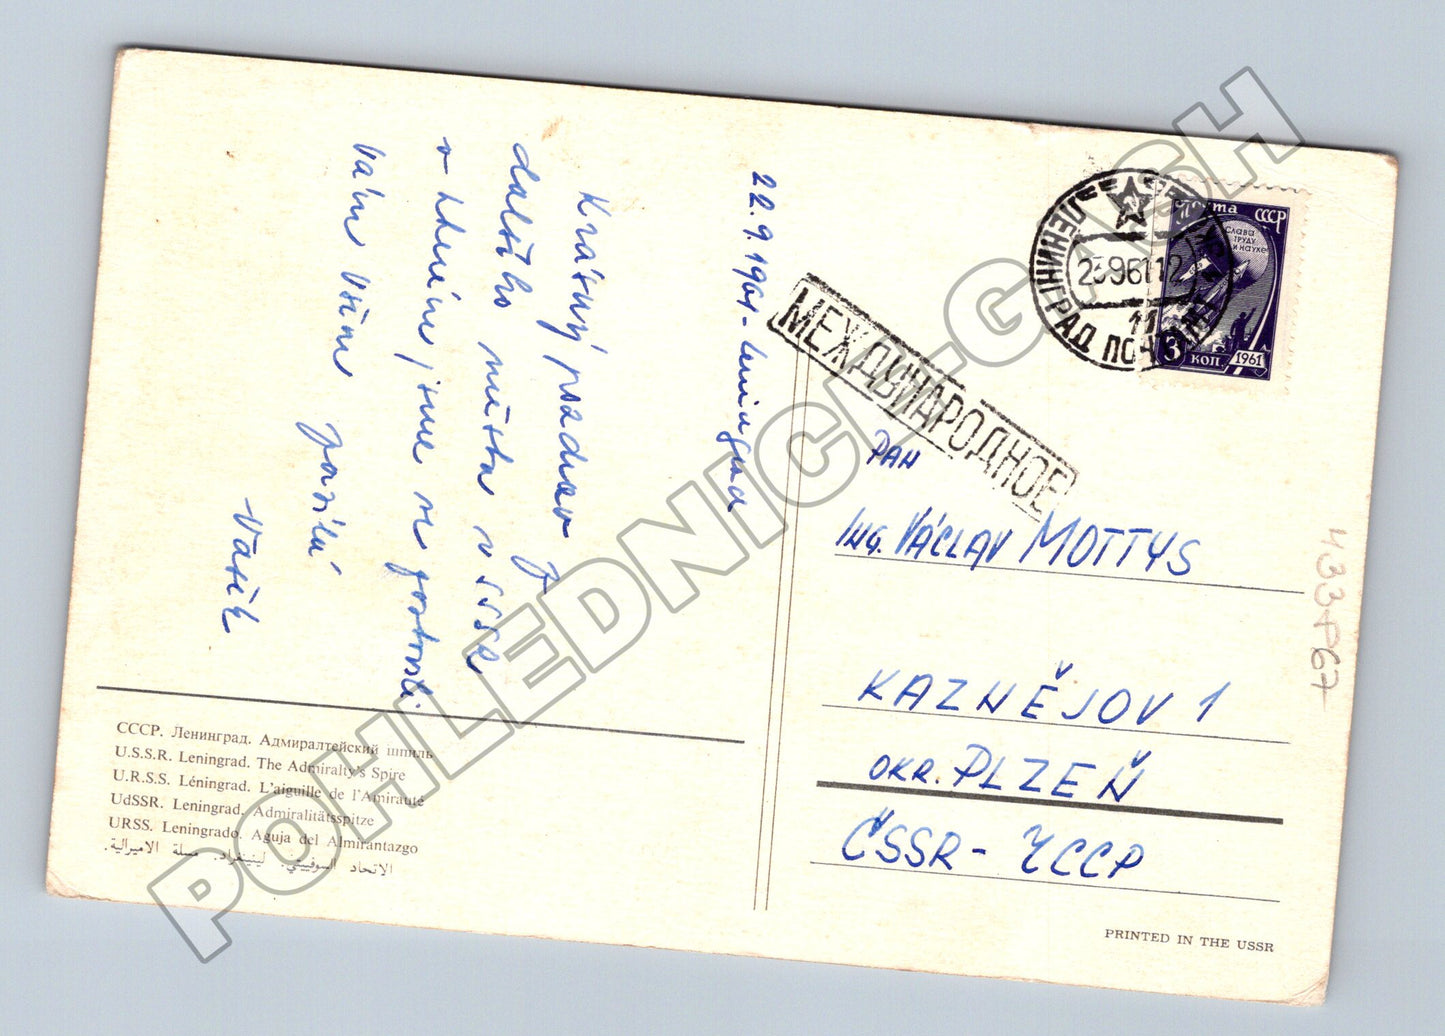 22.9.1961 - Leningrad
Krásný pozdrav z
dalšího města v SSSR
v kterém jsme na
Vám všem posílá
Vašík
СССР. Ленинград. Адмиралтейский шпиль
U.S.S.R. Leningrad. The Admiralty's Spire
U.R.S.S. Léningrad. L'aiguille de l'Amirauté
UdSSR. Leningrad. Admiralitätsspitze
URSS. Leningrado. Aguja del Almirantazgo
الاتحاد السوفييتي. لينينغراد. مسلة الاميرالية.
ПОЧТА СССР
Слава
труду
и науке
3 КОП. 1961
ЛЕНИНГРАД ПОЧТАМТ
23 9 61 12
11
МЕЖДУНАРОДНОЕ
ПАН
ING. VÁCLAV MOTTYS
KAZNĚJOV 1
OKR. PLZEŇ
ČSSR - ЧССР
PRINTED IN THE USSR
433-P67
POHLEDNICE-G-ASH